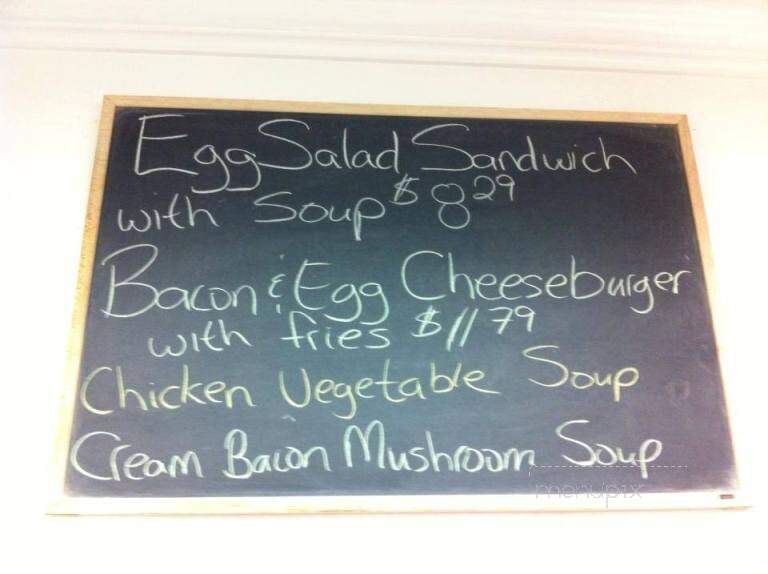 Egg Salad Sandwich
with Soup $8 29
Bacon & Egg Cheeseburger
with fries $11 79
Chicken Vegetable Soup
Cream Bacon Mushroom Soup
menupix